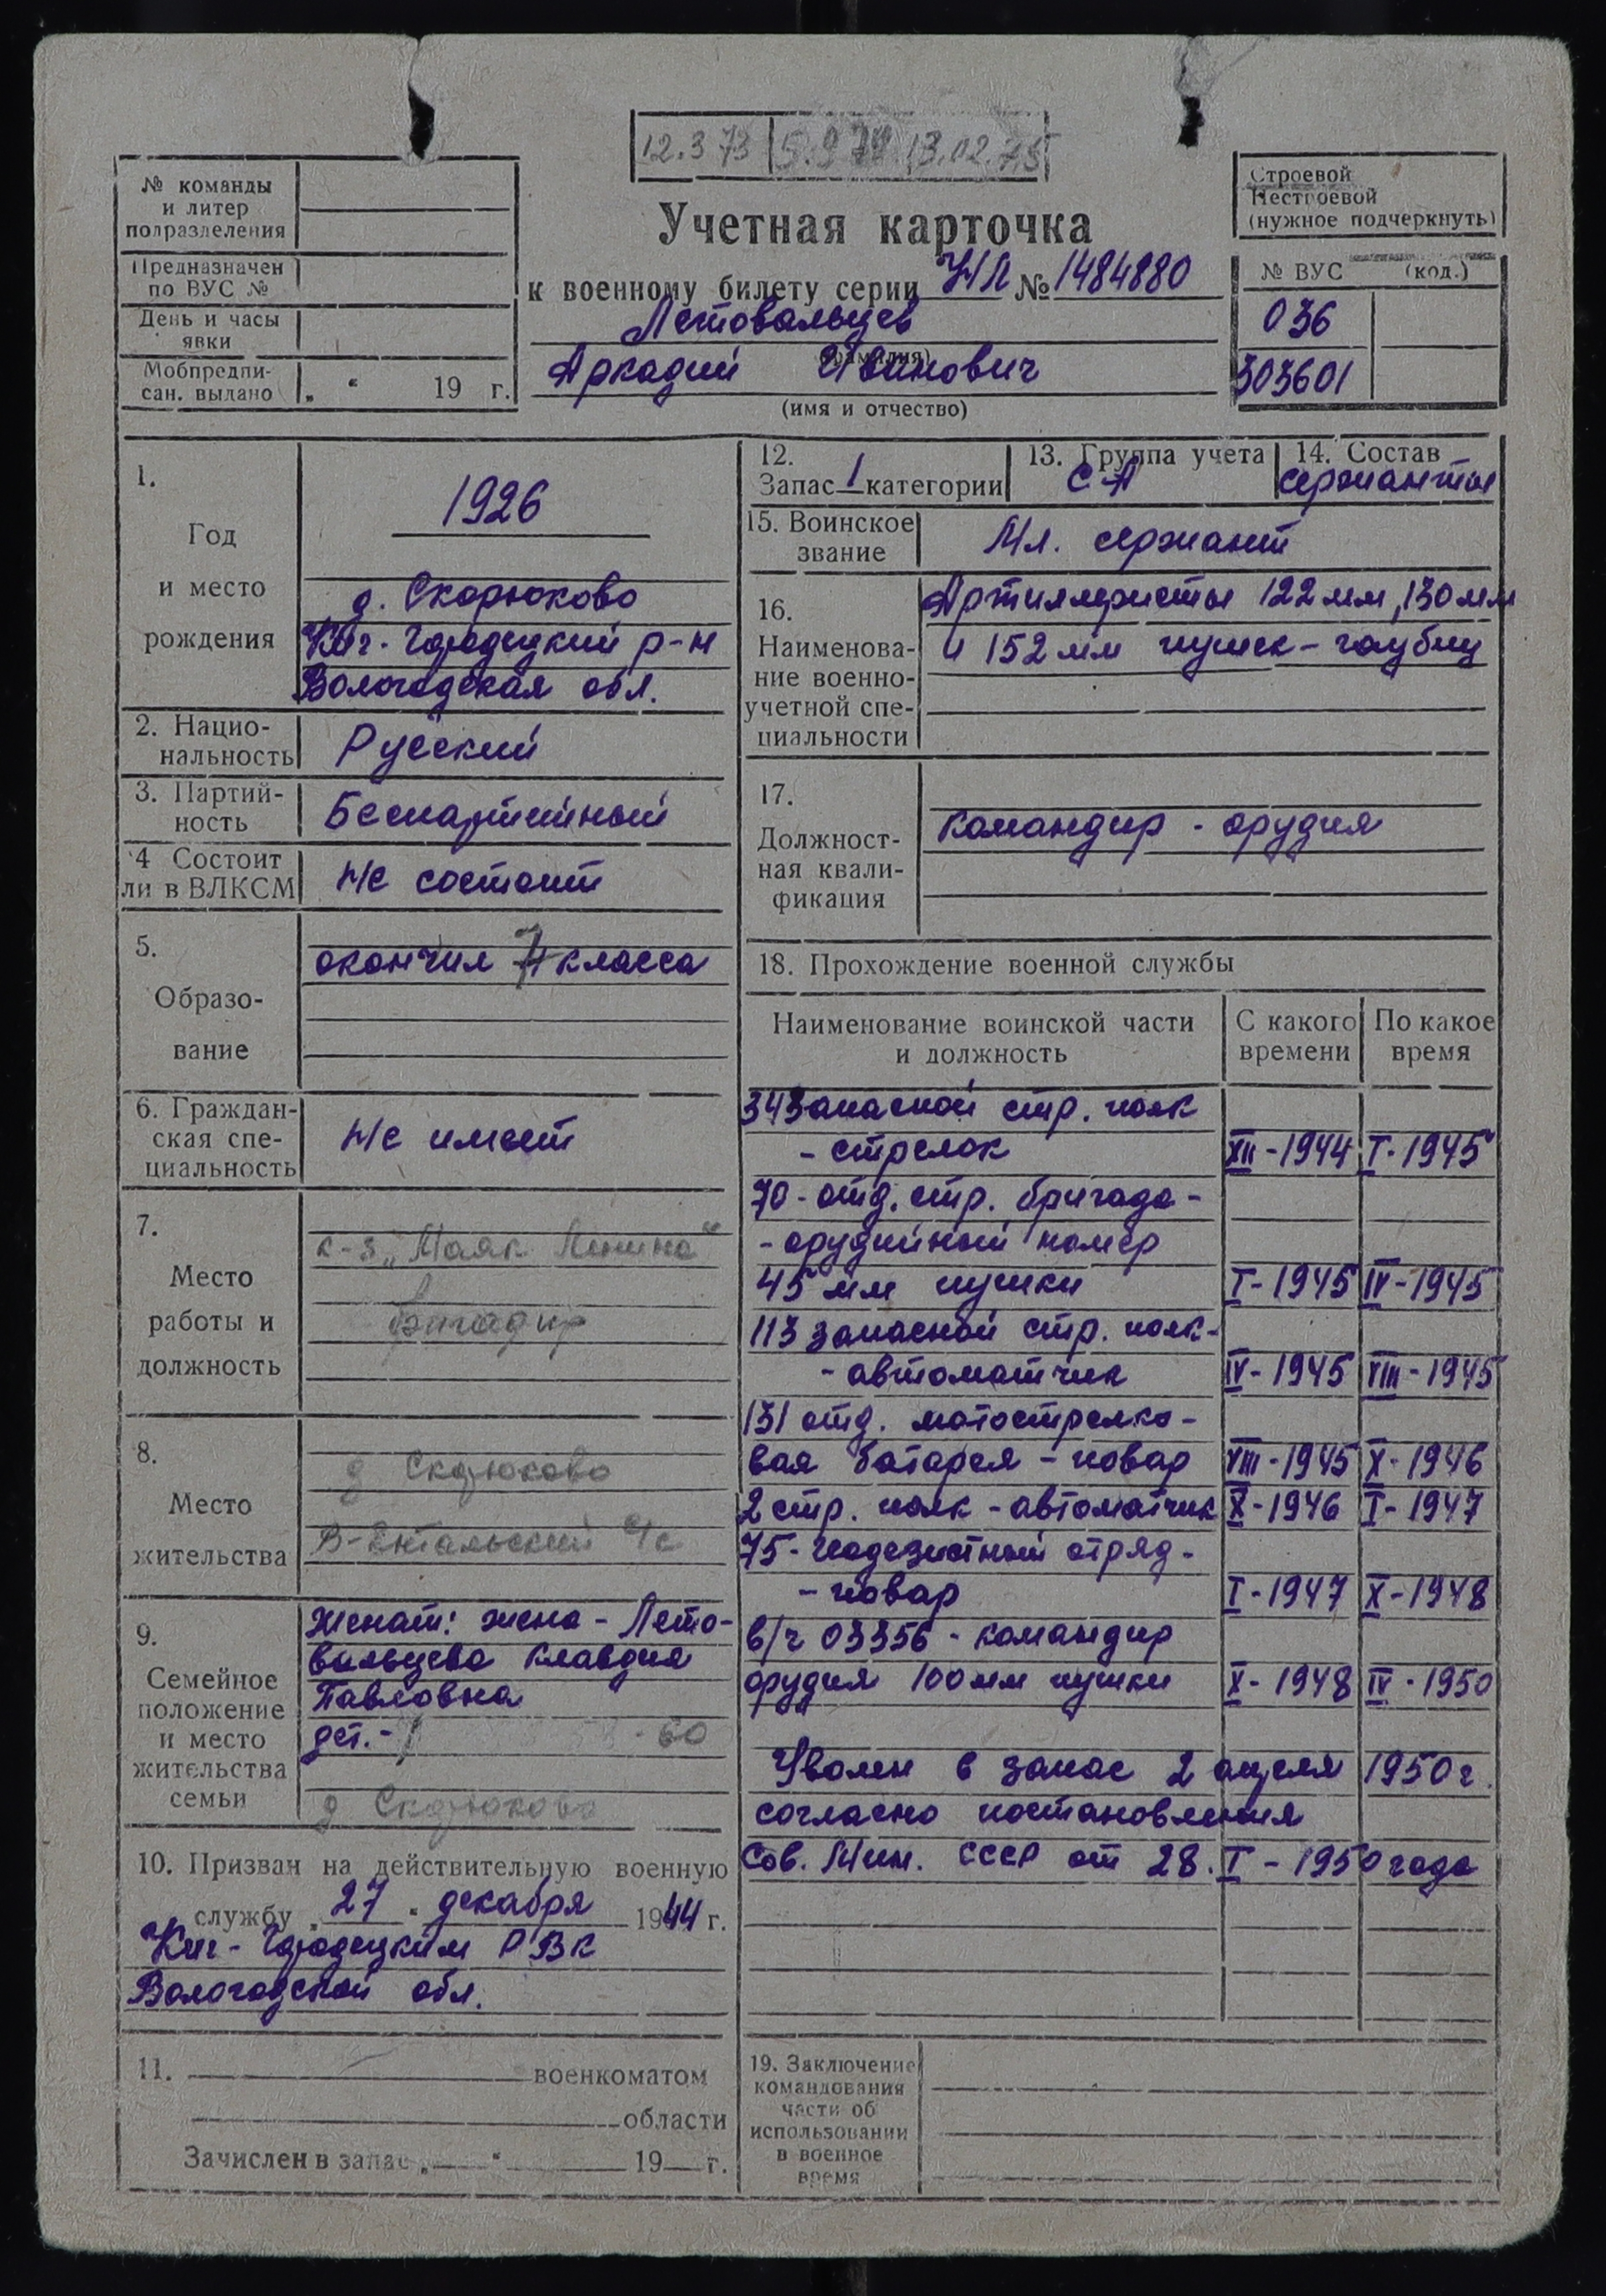 12.3 73 5.9 74 13.02.75
№ команды
и литер
подразделения
Предназначен
по ВУС №
День и часы
явки
Мобпредпи-
сан. выдано „ “ 19 г.
Учетная карточка
к военному билету серии НЛ № 1484880
Летовальцев
(фамилия)
Аркадий Иванович
(имя и отчество)
Строевой
Нестроевой
(нужное подчеркнуть)
№ ВУС (код.)
036
303601
1.
Год
и место
рождения
1926
д. Скорюково
Кич-Городецкий р-н
Вологодская обл.
2. Нацио-
нальность
Русский
3. Партий-
ность
Беспартийный
4 Состоит
ли в ВЛКСМ
Не состоит
5.
Образо-
вание
окончил 7 класса
6. Граждан-
ская спе-
циальность
Не имеет
7.
Место
работы и
должность
к-з „Маяк Ленина“
бригадир
8.
Место
жительства
д Скорюково
В-Ентальский с/с
9.
Семейное
положение
и место
жительства
семьи
Женат: жена - Лето-
вальцева Клавдия
Павловна
дет.- - 60
д Скорюково
10. Призван на действительную военную
службу „27“ декабря 1944 г.
Кич-Городецким РВК
Вологодской обл.
11. военкоматом
области
Зачислен в запас „ “ 19 г.
12.
Запас 1 категории
13. Группа учета
СА
14. Состав
сержанты
15. Воинское
звание
Мл. сержант
16.
Наименова-
ние военно-
учетной спе-
циальности
Артиллеристы 122 мм, 130 мм
и 152 мм пушек-гаубиц
17.
Должност-
ная квали-
фикация
командир - орудия
18. Прохождение военной службы
Наименование воинской части
и должность
С какого
времени
По какое
время
34 запасной стр. полк
- стрелок XII-1944 I-1945
70-отд. стр. бригада-
- орудийный номер
45 мм пушки I-1945 IV-1945
113 запасной стр. полк-
- автоматчик IV-1945 VIII-1945
131 отд. мотострелко-
вая батарея - повар VIII-1945 X-1946
2 стр. полк - автоматчик X-1946 I-1947
75-геодезистный отряд-
- повар I-1947 X-1948
в/ч 03356 - командир
орудия 100 мм пушки X-1948 IV-1950
Уволен в запас 2 апреля 1950 г.
согласно постановления
Сов. Мин. СССР от 28. I - 1950 года
19. Заключение
командования
части об
использовании
в военное
время